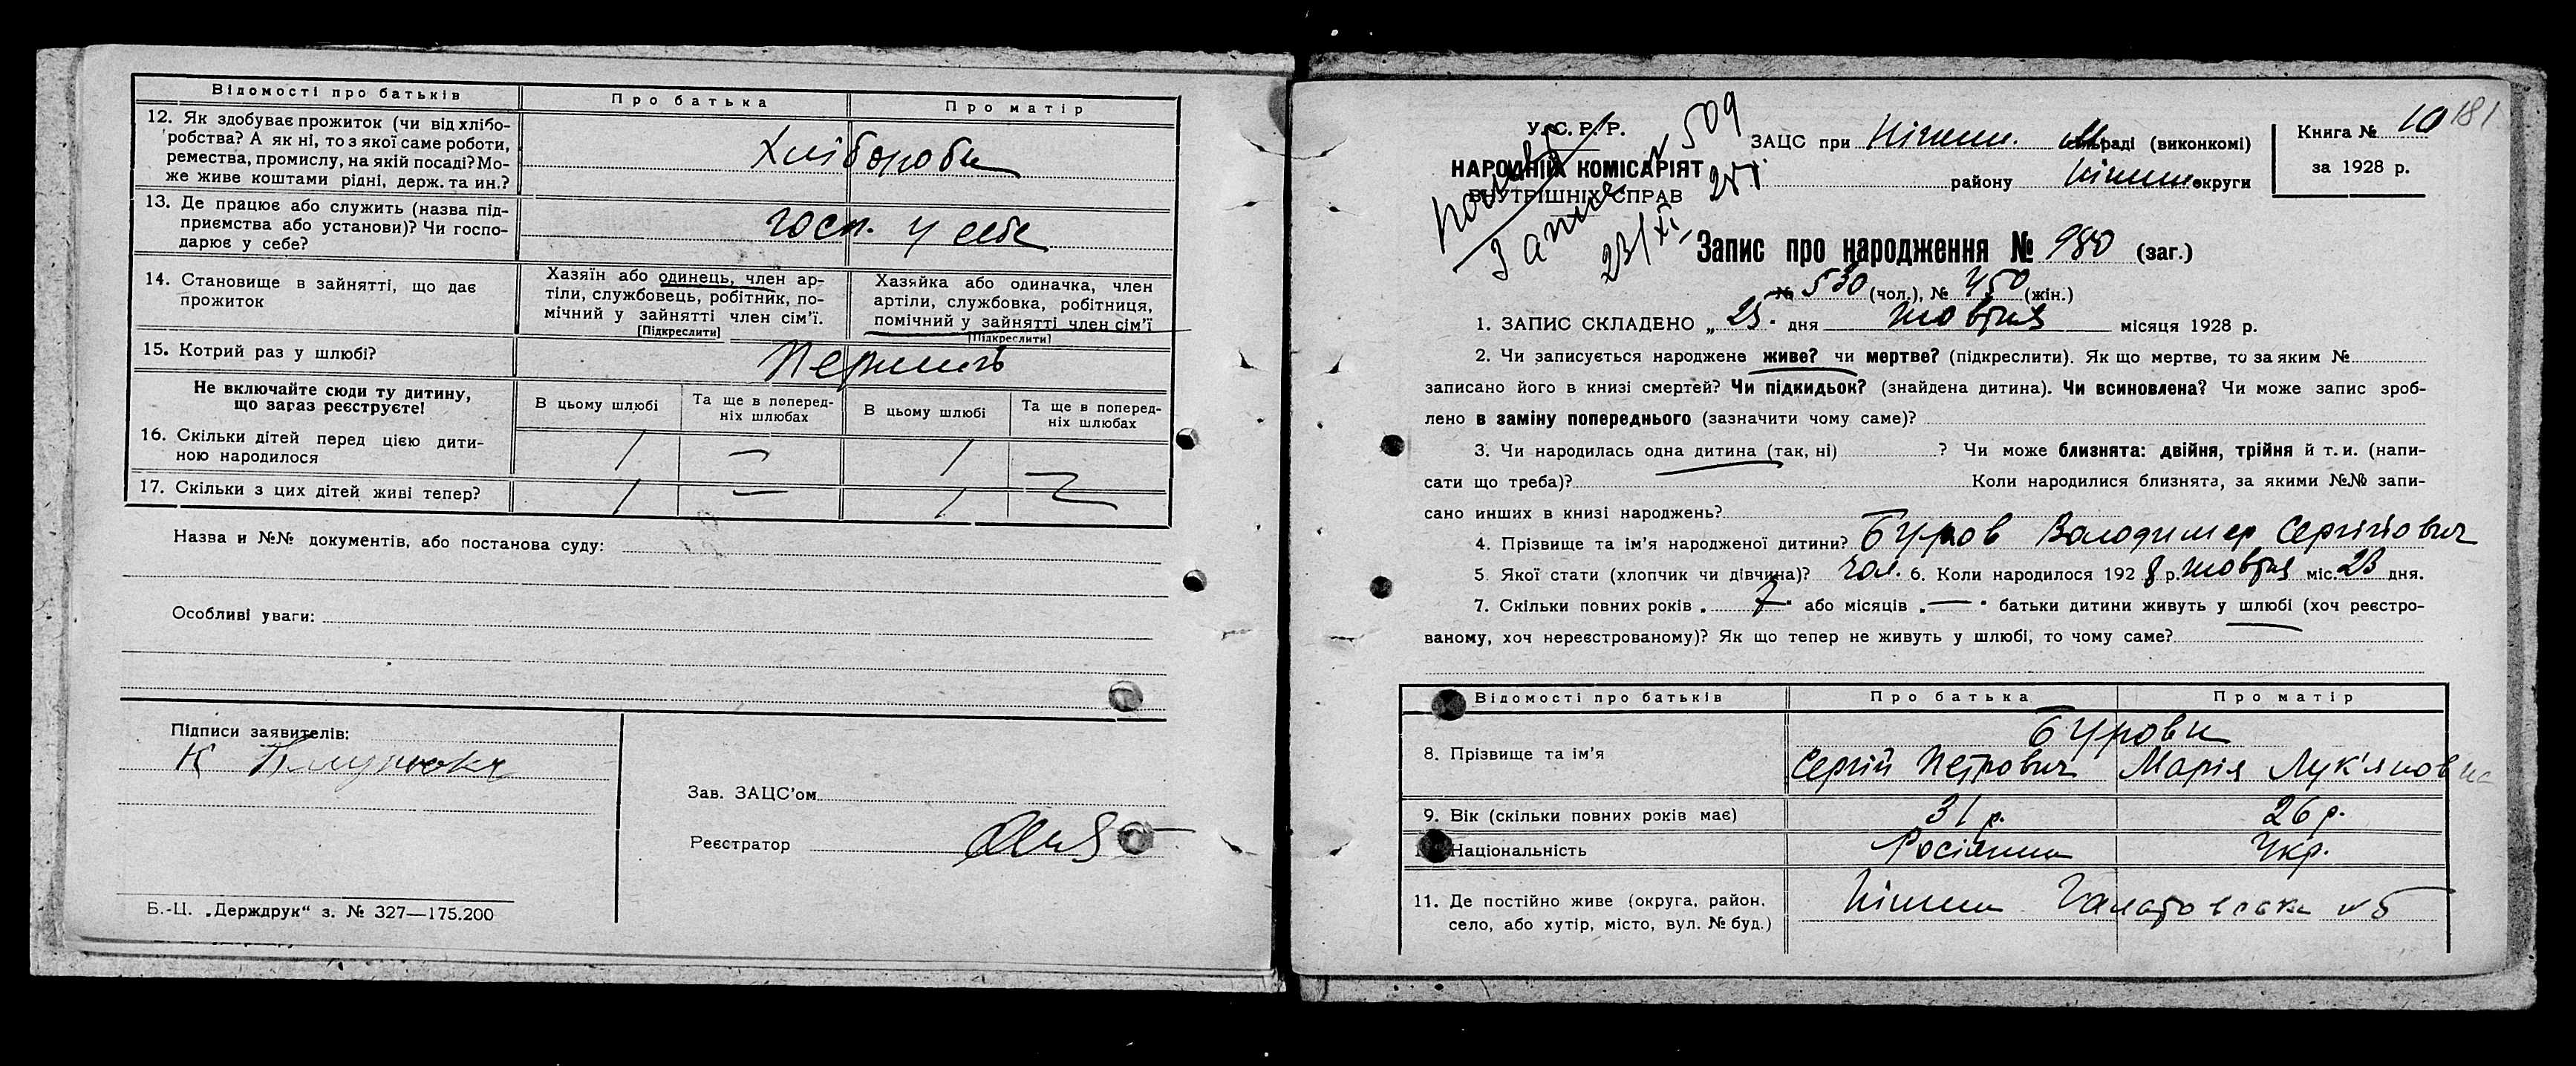 Відомості про батьків
Про батька
Про матір
12. Як здобуває прожиток (чи від хлібо-
робства? А як ні, то з якої саме роботи,
ремества, промислу, на якій посаді? Мо-
же живе коштами рідні, держ. та ин.?
Хлібороби
13. Де працює або служить (назва під-
приємства або установи)? Чи госпо-
дарює у себе?
госп. у себе
14. Становище в зайнятті, що дає
прожиток
Хазяїн або одинець, член ар-
тіли, службовець, робітник, по-
мічний у зайнятті член сім'ї.
[Підкреслити]
Хазяйка або одиначка, член
артіли, службовка, робітниця,
помічний у зайнятті член сім'ї
[Підкреслити]
15. Котрий раз у шлюбі?
Не включайте сюди ту дитину,
що зараз реєструєте!
В цьому шлюбі
Та ще в поперед-
ніх шлюбах
В цьому шлюбі
Та ще в поперед-
ніх шлюбах
16. Скільки дітей перед цією дити-
ною народилося
1 — 1 —
17. Скільки з цих дітей живі тепер?
1 — 1 —
Назва и №№ документів, або постанова суду:
Особливі уваги:
Підписи заявителів:
Зав. ЗАЦС'ом
Реєстратор
Б.-Ц. „Держдрук“ з. № 327—175.200
У. С. Р. Р.
НАРОДНІЙ КОМІСАРІЯТ
ВНУТРІШНІХ СПРАВ
509
23/XI
ЗАЦС при Ніжин. М. раді (виконкомі)
району Ніжин округи
Книга № 10
за 1928 р.
181
Запис про народження № 980 (заг.)
№ 530 (чол.), № 450 (жін.)
1. ЗАПИС СКЛАДЕНО „ 25 “ дня жовтня місяця 1928 р.
2. Чи записується народжене живе? чи мертве? (підкреслити). Як що мертве, то за яким №
записано його в книзі смертей? Чи підкидьок? (знайдена дитина). Чи всиновлена? Чи може запис зроб-
лено в заміну попереднього (зазначити чому саме)?
3. Чи народилась одна дитина (так, ні) ? Чи може близнята: двійня, трійня й т. и. (напи-
сати що треба)? Коли народилися близнята, за якими №№ запи-
сано инших в книзі народжень?
4. Прізвище та ім'я народженої дитини? Буров Володимер Сергійович
5. Якої стати (хлопчик чи дівчина)? чол. 6. Коли народилося 1928 р. жовтня міс. 23 дня.
7. Скільки повних років „ 7 “ або місяців „ — “ батьки дитини живуть у шлюбі (хоч реєстро-
ваному, хоч нереєстрованому)? Як що тепер не живуть у шлюбі, то чому саме?
Відомості про батьків
Про батька
Про матір
8. Прізвище та ім'я
Бурови
Сергій Петрович
Марія Лук'яновна
9. Вік (скільки повних років має)
31 р.
26 р.
Національність
Росіянин
Укр.
11. Де постійно живе (округа, район,
село, або хутір, місто, вул. № буд.)
Ніжин